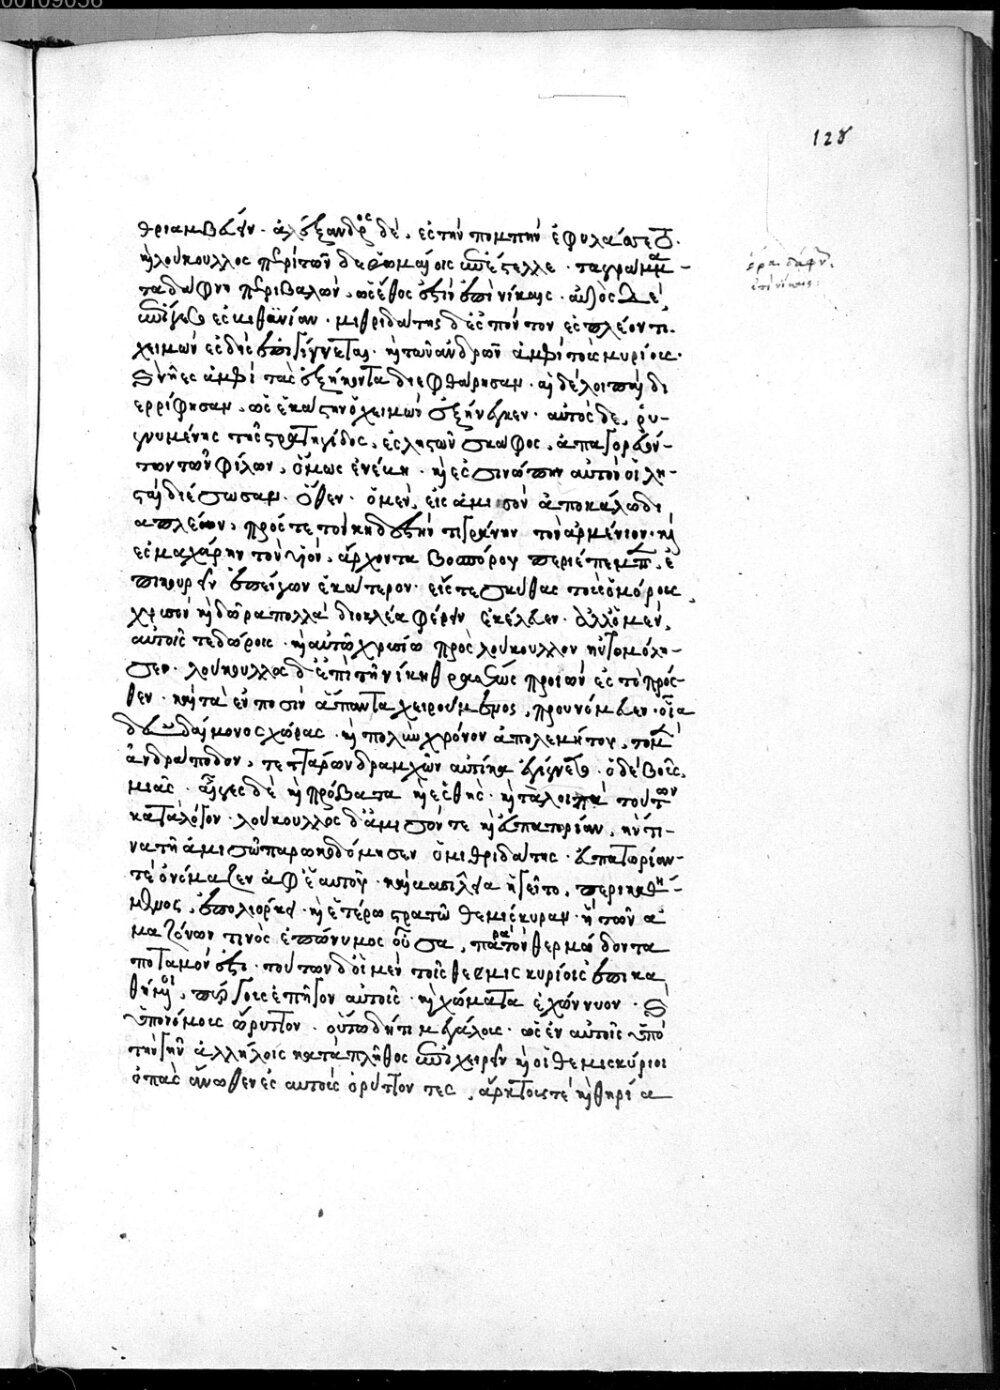 θριαμβεύειν· ἀλέξανδρος δὲ, ἐς τὴν πομπὴν ἐφυλάσσετο·
κ(αὶ) λούκουλλος περὶ τῶν δε ῥωμαίοις ἐπέστελλε· τὰ γράμμα-
τα δάφνη περιβαλὼν, ὡς ἔθος ἐστὶν ἐπὶ νίκαις· αὐτὸς δὲ
ἠπείγετο ἐς βιθυνίαν· μιθριδάτης δ' ἐς πόντον ἐσπλέοντι
χειμὼν ἐς δὶς ἐπιγίγνεται· κ(αὶ) τῶν ἀνδρῶν ἀμφὶ τοὺς μυρίους·
κ(αὶ) νῆες ἀμφὶ τὰς ἑξήκοντα διεφθάρησαν· αἱ δὲ λοιπαὶ δι
ερρίφησαν, ὡς ἑκάστην ὁ χειμὼν ἐξήνεγκεν· αὐτὸς δὲ, ῥη-
γνυμένης τῆς στρατηγίδος, ἐς ληστῶν σκάφος, ἀπαγορευόν-
των τῶν φίλων, ὅμως ἐνέβη· κ(αὶ) ἐς σινώπην αὐτὸν οἱ λη-
σταὶ διέσωσαν· ὅθεν· ὁ μὲν, εἰς ἀμισὸν ἀπὸ κάλω δι
απλέων, πρός τε τὸν κηδεστὴν τιγράνην τὸν ἀρμένιον· κ(αὶ)
ἐς μαχάρην τὸν υἱὸν, ἄρχοντα βοσπόρου περιέπεμπεν, ἐ
πικουρεῖν ἐπείγων ἑκάτερον· εἴς τε σκύθας τοὺς ὁμόρους
χρυσὸν κ(αὶ) δῶρα πολλὰ διοκλέα φέρειν ἐκέλευεν· ἀλλ' ὁ μὲν,
αὐτοῖς τε δώροις· κ(αὶ) αὐτῶ χρυσίω πρὸς λούκουλλον ηὐτομόλη-
σεν· λούκουλλος δ' ἐπὶ τῆ νίκη θρασέως προϊὼν ἐς τὸ πρόσ-
θεν· καὶ τὰ ἐν ποσὶν ἅπαντα χειρούμενος, προυνόμευεν· οἷα
δ' εὐδαίμονος χώρας· κ(αὶ) πολὺν χρόνον ἀπολεμήτου, τὸ μὲν
ἀνδράποδον, τεττάρων δραχμῶν αὐτίκα ἐγίγνετο· ὁ δὲ βοῦς,
μιᾶς· αἶγες δὲ κ(αὶ) πρόβατα κ(αὶ) ἐσθὴς· κ(αὶ) τὰ λοιπὰ τούτων
κατὰ λόγον· λούκουλλος δ' ἀμισόν τε κ(αὶ) εὐπατορίαν, ἥν τι-
να τῆ ἀμισῶ παρωκοδόμησεν ὁ μιθριδάτης· εὐπατορίαν-
τὲ ὀνόμαζεν ἀφ' ἑαυτοῦ· καὶ βασίλεια ἡγεῖτο, περικαθή-
μενος, ἐπολιόρκει· κ(αὶ) ἑτέρω στρατῶ θεμίσκυραν· ἣ τῶν ἀ
μαζόνων τινὸς ἐπώνυμος οὖσα, παρὰ τὸν θερμώδοντα
ποταμόν ἐστι· τούτων δ' οἱ μὲν τοῖς θεμισκυρίοις ἐπικα
θήμενοι, πύργους ἐπῆγον αὐτοῖς· κ(αὶ) χώματα ἐχώννυον· κ(αὶ)
ὑπονόμους ὤρυττον· οὕτω δή τι μεγάλους· ὡς ἐν αὐτοῖς ὑπὸ
τὴν γῆν ἀλλήλοις κατὰ πλῆθος ἐπιχειρεῖν κ(αὶ) οἱ θεμισκύριοι
ὀπὰς ἄνωθεν ἐς αὐτοὺς ὀρύττοντες, ἄρκτους τὲ κ(αὶ) θηρία